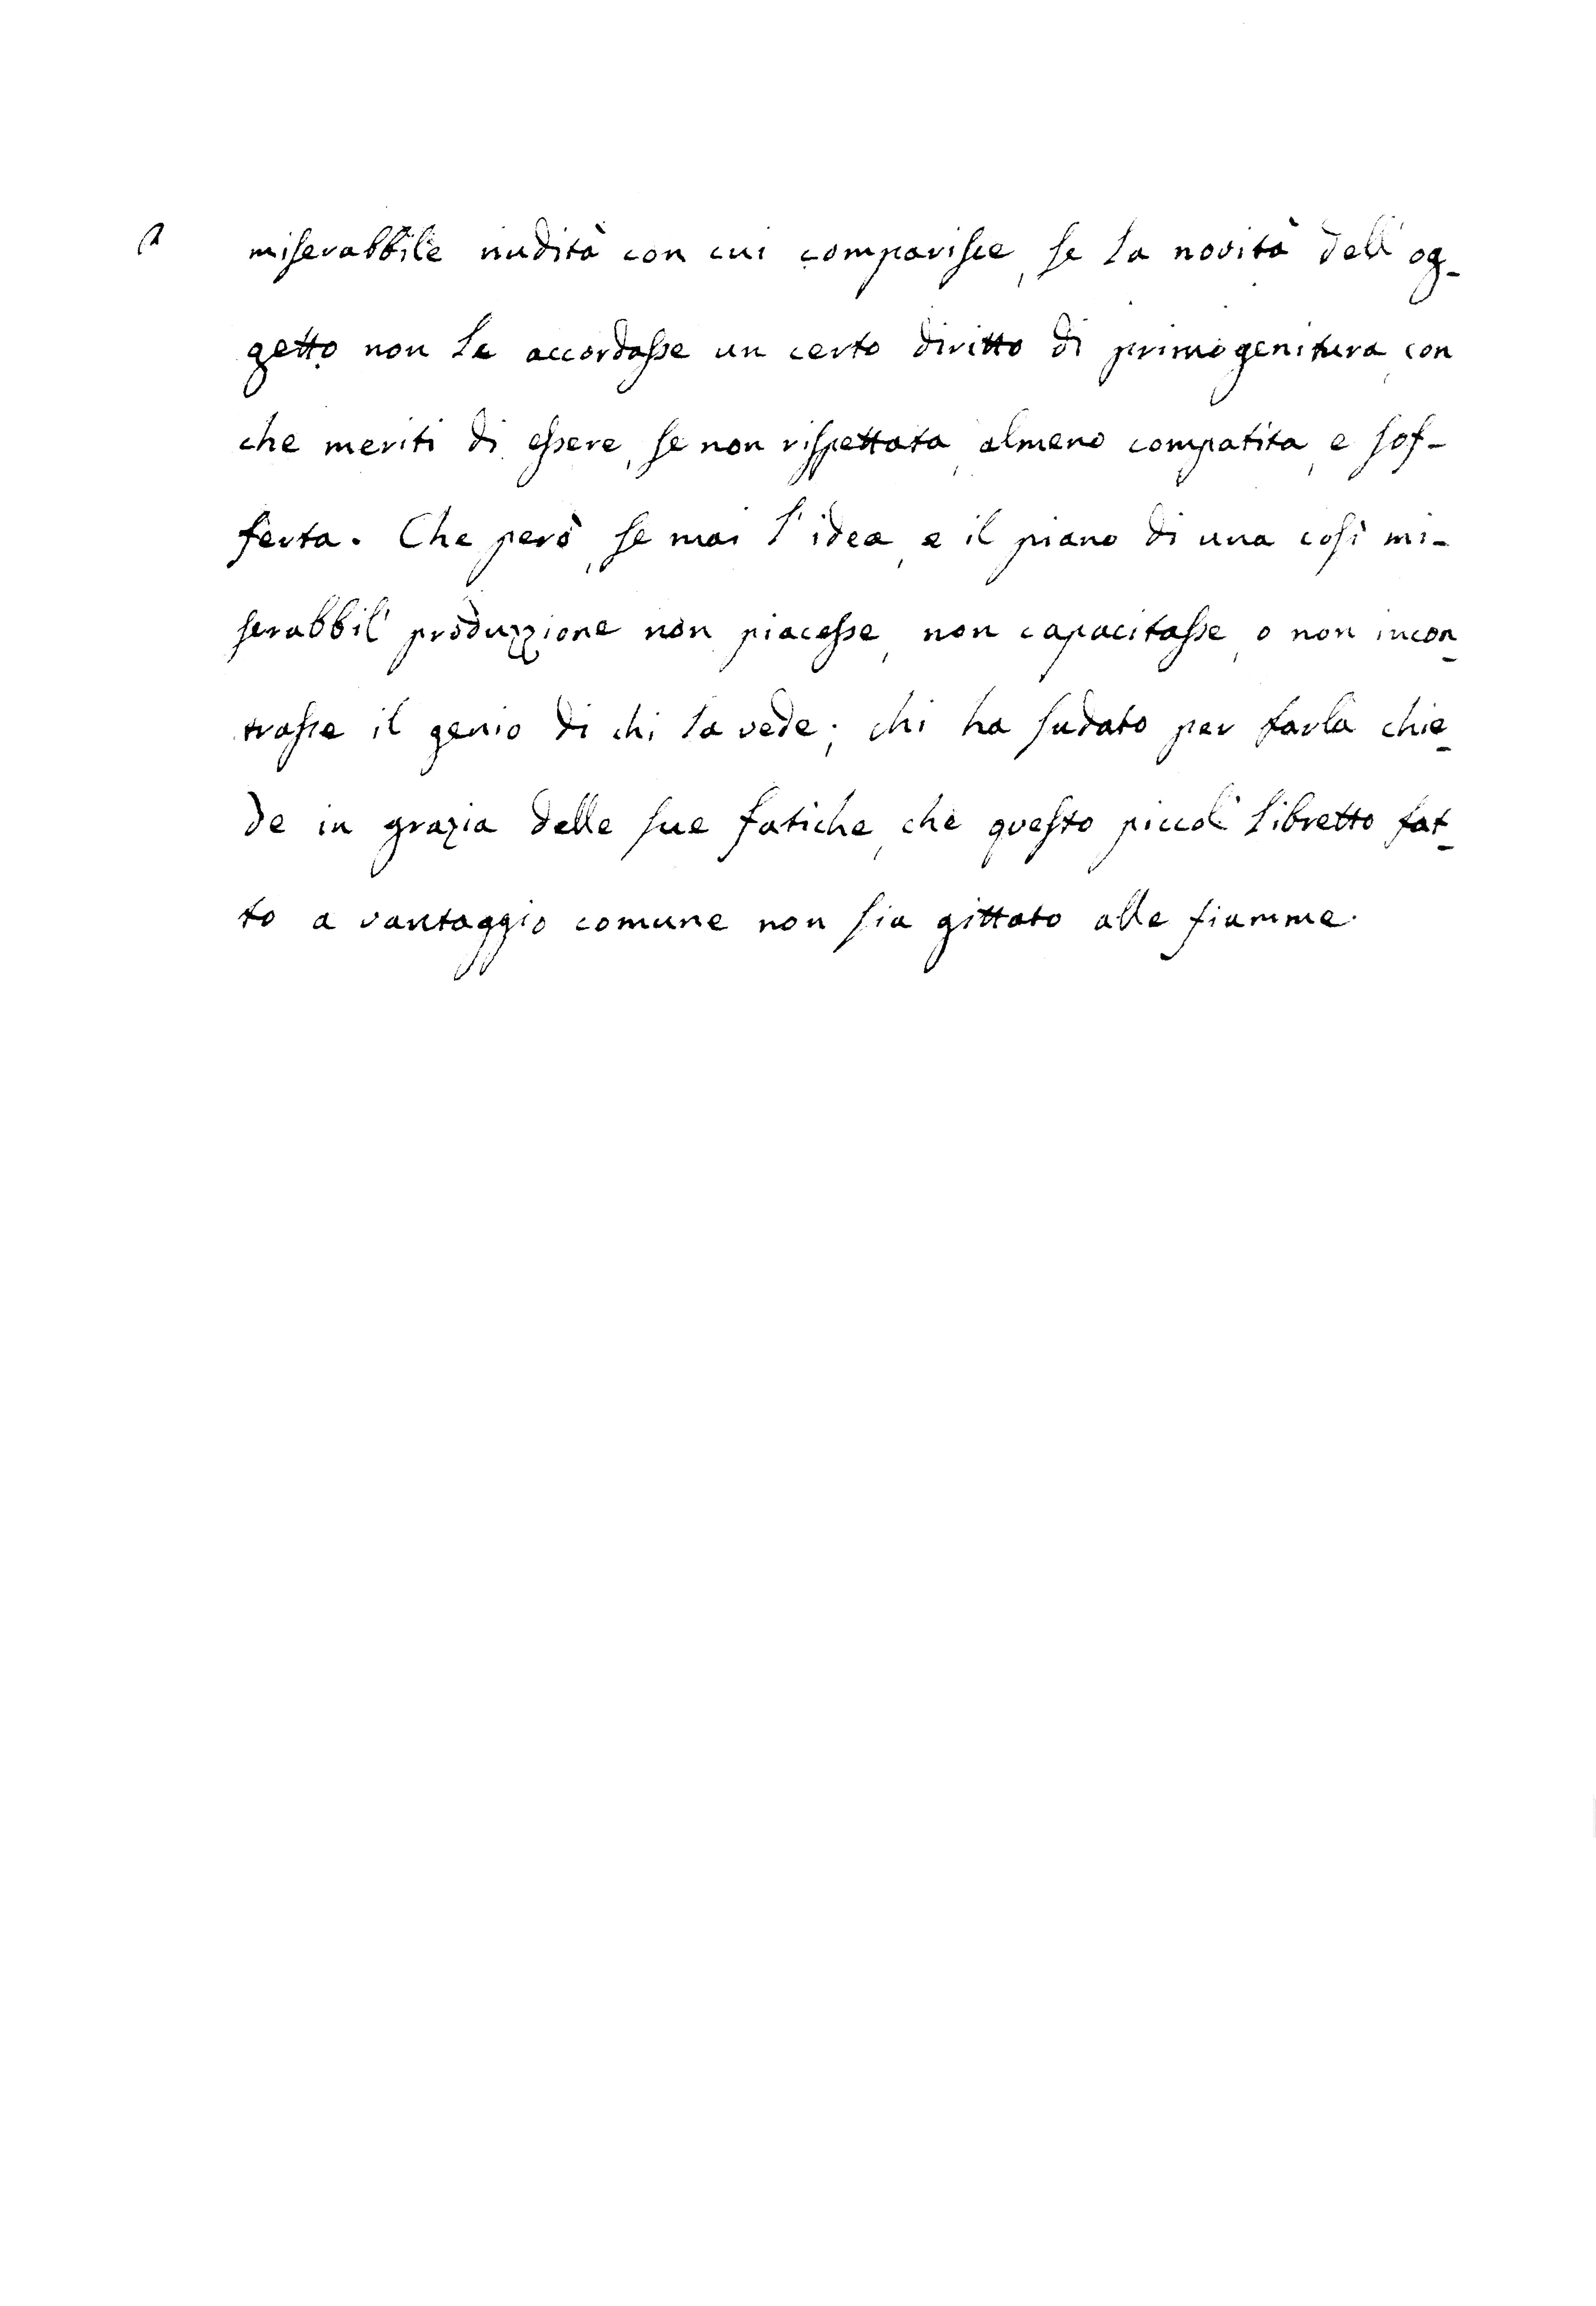 2 miserabbile nudità con cui comparisce, se la novità dell'og-
getto non le accordasse un certo diritto di primogenitura, con
che meriti di essere, se non rispettata, almeno compatita, e sof-
ferta. Che però, se mai l'idea, e il piano di una così mi-
serabbil' produzzione non piacesse, non capacitasse, o non incon-
trasse il genio di chi la vede; chi ha sudato per farla chie-
de in grazia delle sue fatiche, che questo piccol' libretto fat-
to a vantaggio comune non sia gittato alle fiamme.